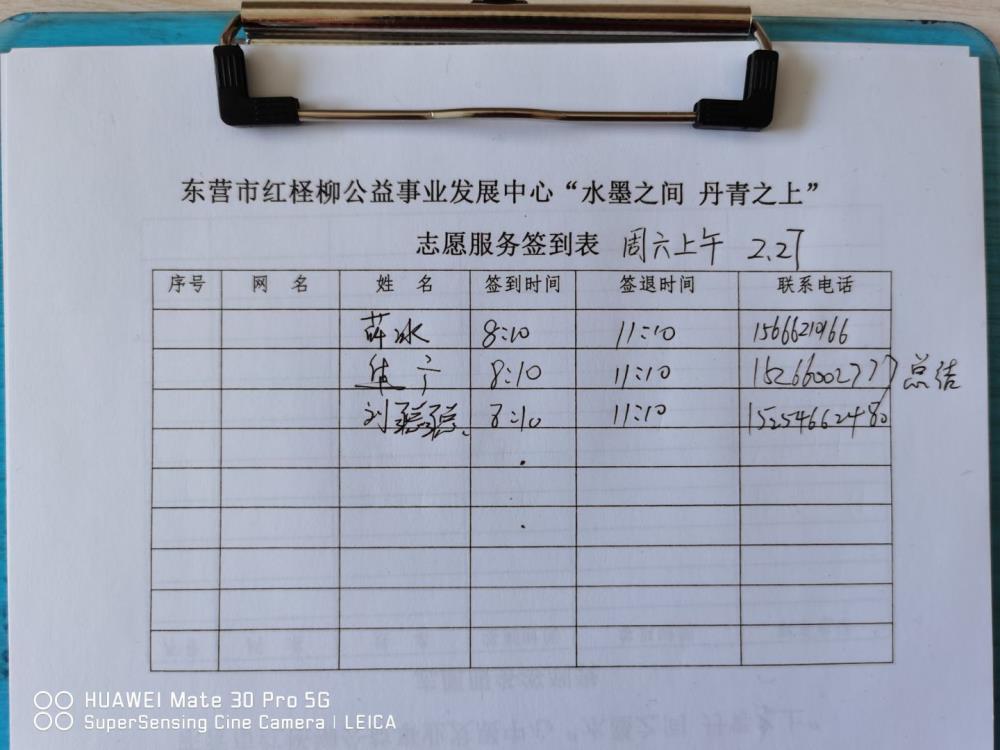 东营市红柽柳公益事业发展中心“水墨之间 丹青之上”
志愿服务签到表 周六上午 2.27
序号 网 名 姓 名 签到时间 签退时间 联系电话
薛冰 8:10 11:10
8:10 11:10 15266002777 总结
刘聪聪 8:10 11:10 15254662480
HUAWEI Mate 30 Pro 5G
SuperSensing Cine Camera | LEICA